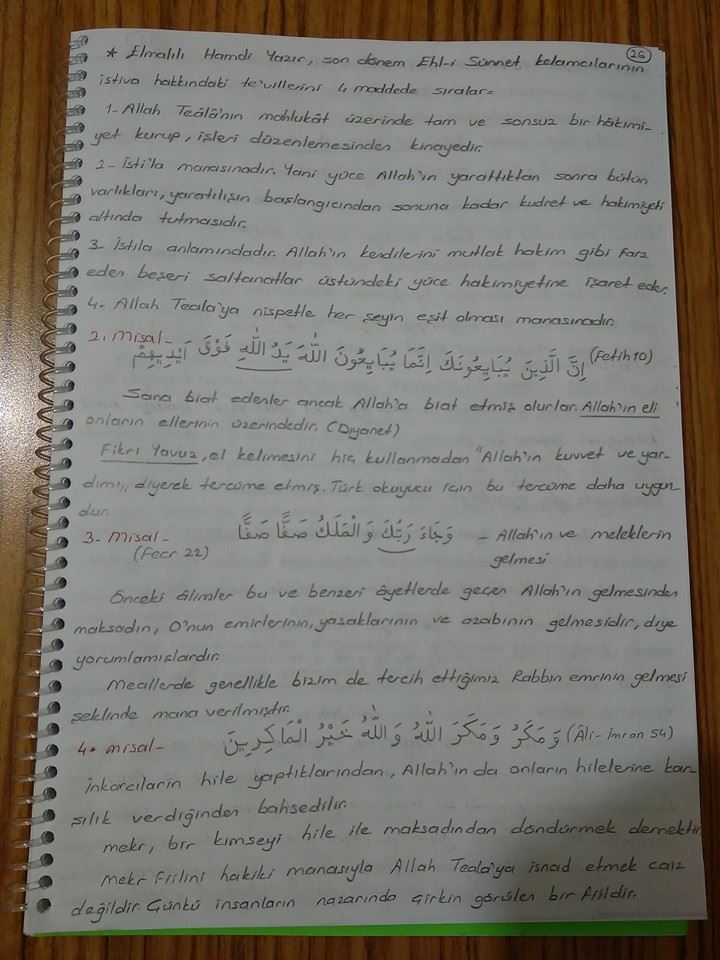 26
* Elmalılı Hamdi Yazır, son dönem Ehl-i Sünnet kelamcılarının
istiva hakkındaki te'villerini 4 maddede sıralar=
1- Allah Teâlâ'nın mahlukât üzerinde tam ve sonsuz bir hâkimi-
yet kurup, işleri düzenlemesinden kinayedir.
2- İsti'la manasınadır. Yani yüce Allah'ın yarattıktan sonra bütün
varlıkları, yaratılışın başlangıcından sonuna kadar kudret ve hakimiyeti
altında tutmasıdır.
3- İstila anlamındadır. Allah'ın kendilerini mutlak hakim gibi farz
eden beşeri saltanatlar üstündeki yüce hakimiyetine işaret eder.
4- Allah Teala'ya nispetle her şeyin eşit olması manasınadır.
2. Misal-
اِنَّ الَّذِينَ يُبَايِعُونَكَ اِنَّمَا يُبَايِعُونَ اللّٰهَ يَدُ اللّٰهِ فَوْقَ اَيْدِيهِمْ (Fetih 10)
Sana biat edenler ancak Allah'a biat etmiş olurlar. Allah'ın eli
onların ellerinin üzerindedir. (Diyanet)
Fikri Yavuz, el kelimesini hiç kullanmadan "Allah'ın kuvvet ve yar-
dımı,, diyerek tercüme etmiş. Türk okuyucu için bu tercüme daha uygun-
dur.
3- Misal- وَجَاءَ رَبُّكَ وَالْمَلَكُ صَفًّا صَفًّا - Allah'ın ve meleklerin
(Fecr 22) gelmesi
Önceki âlimler bu ve benzeri âyetlerde geçen Allah'ın gelmesinden
maksadın, O'nun emirlerinin, yasaklarının ve azabının gelmesidir, diye
yorumlamışlardır.
Meallerde genellikle bizim de tercih ettiğimiz Rabbin emrinin gelmesi
şeklinde mana verilmiştir.
4. misal- وَمَكَرُ وَمَكَرَ اللّٰهُ وَاللّٰهُ خَيْرُ الْمَاكِرِينَ (Âli-imran 54)
İnkarcıların hile yaptıklarından, Allah'ın da onların hilelerine kar-
şılık verdiğinden bahsedilir.
mekr, bir kimseyi hile ile maksadından döndürmek demektir
Mekr fiilini hakiki manasıyla Allah Teala'ya isnad etmek caiz
değildir. Çünkü insanların nazarında çirkin görülen bir fiildir.